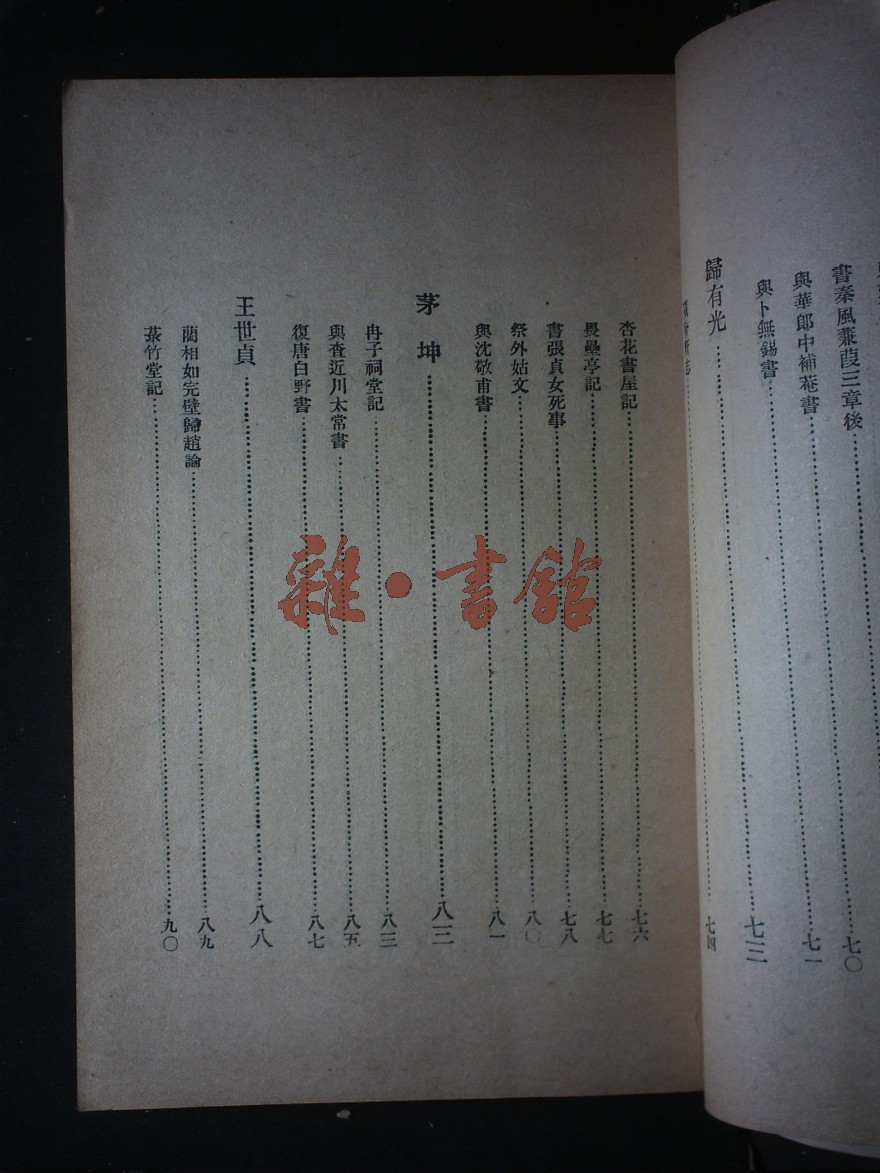 書秦風蒹葭三章後
與華郎中補菴書……七〇
與卜無錫書……七一
歸有光……七三
七四
杏花書屋記……七六
畏壘亭記……七七
書張貞女死事……七八
祭外姑文……八〇
與沈敬甫書……八一
茅坤……八三
冉子祠堂記……八三
與查近川太常書……八五
復唐白野書……八七
王世貞……八八
藺相如完壁歸趙論……八九
菉竹堂記……九〇
雜·書館